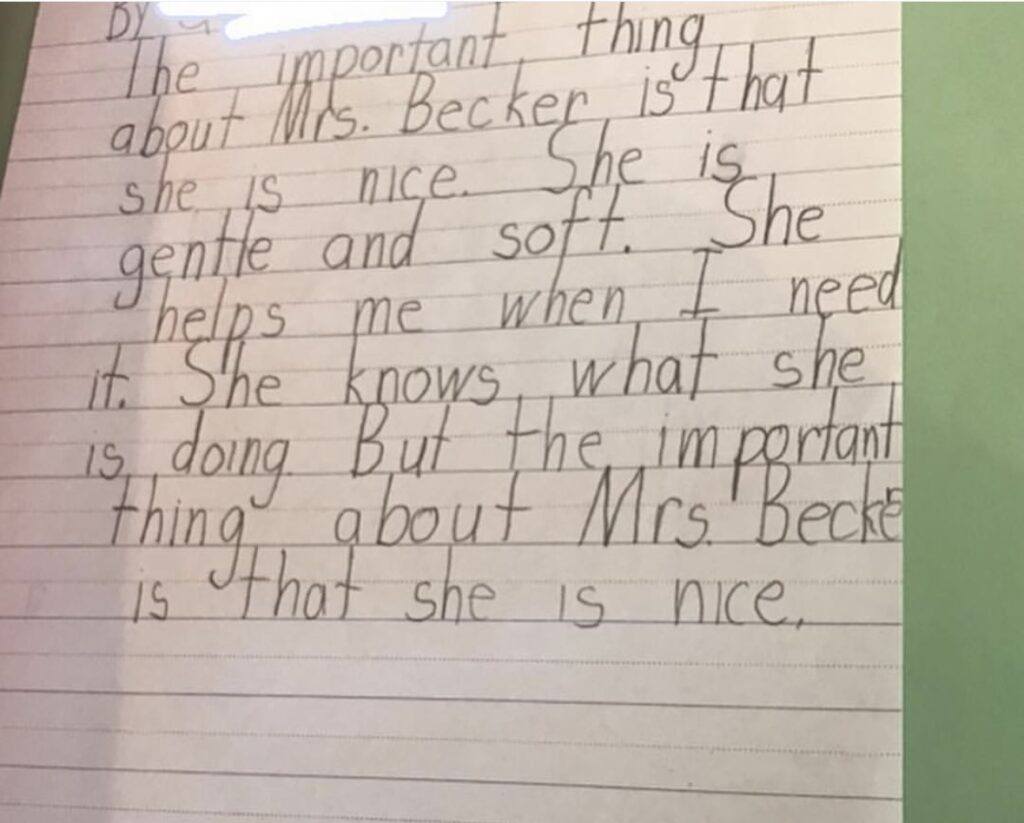 By
The important thing
about Mrs. Becker is that
she is nice. She is
gentle and soft. She
helps me when I need
it. She knows what she
is doing. But the important
thing about Mrs. Becke
is that she is nice.